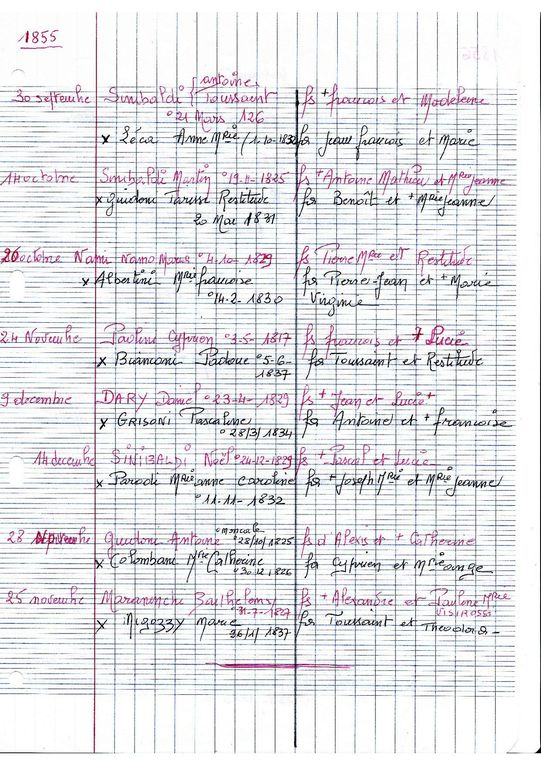 1855
antoine
30 septembre Sinibaldi { Toussaint fs + francois et Madeleine
° 21 Mars 126
x Léca Anne Mrie / 1.10-1832 fa Jean francois et Marie
14 octobre Sinibaldi Martin ° 19-11-1825 fs + Antoine Mathieu et Mrie Jeanne
x Guidoni Restitude fa Benoît et + Mrie Jeanne
20 Mai 1831
26 octobre Nami ° 4-10-1829 fs Pierre Mrie et Restitude
x Albertini Mrie francoise fa Pierre-Jean et + Marie
° 14-2-1830 Virginie
24 Novembre Paolini Cyprien ° 3-5-1817 fs francois et + Lucie
x Bianconi Padoue ° 5-6- fa Toussaint et Restitude
1837
9 decembre DARY Daniel ° 23-4-1829 fs + Jean et Lucie +
x GRISONI Pascaline fa Antoine et + francoise
° 28/3/1834
14 decembre SINIBALDI Noël ° 24-12-1829 fs + Pascal et Lucie
x Parodi Mrie anne Caroline fa + Joseph Mrie et Mrie Jeanne
° 11-11-1832
28 Novembre Guidoni Antoine ° 28/10/1825 fs d'Alexis et + Catherine
x Colombani Mrie Catherine fa Cyprien et Mrie ange
° 30.12.1826
25 novembre Maraninchi Barthelomy fs + Alexandre et Pauline Mrie
° 31-7-1827 VISIROSSI
x Marie fa Toussaint et Theodora -
° 26/1/1837